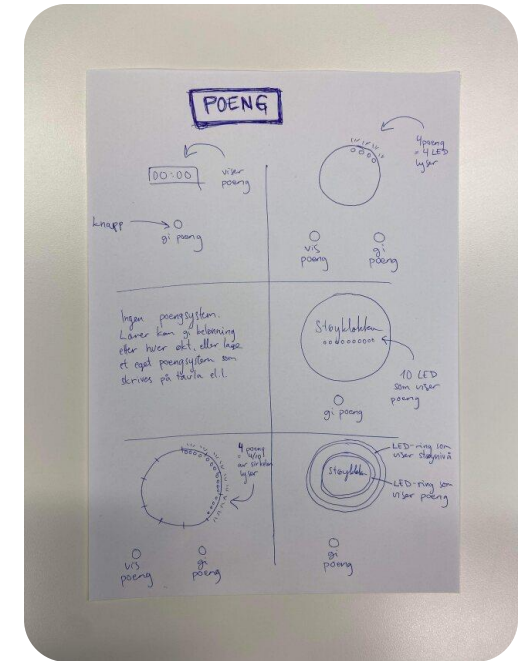 POENG
00:00
viser
poeng
knapp
gi poeng
4 poeng
= 4 LED
lyser
vis
poeng
gi
poeng
Ingen poengsystem.
Lærer kan gi belønning
etter hver økt, eller lage
et eget poengsystem som
skrives på tavla el.l.
Støyklokken
10 LED
som viser
poeng
gi poeng
4 poeng
= 4/10
av sirkelen
lyser
vis
poeng
gi
poeng
LED-ring som
viser støynivå
Støyklokken
LED-ring som
viser poeng
gi
poeng